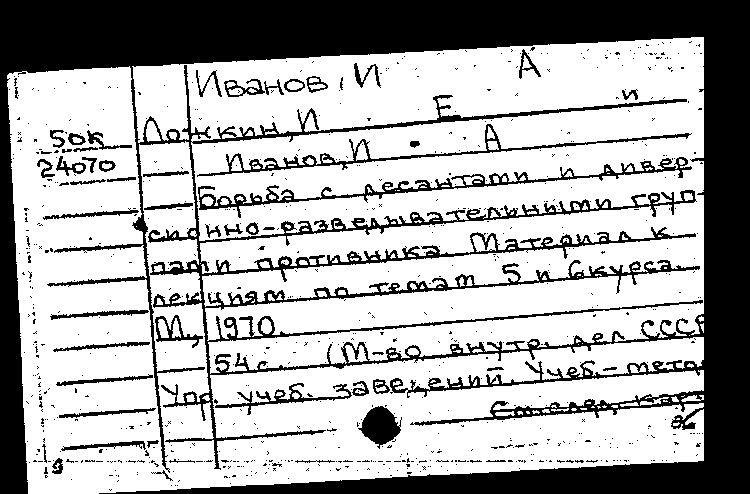 Иванов, И А
Ложкин, И Е и
50к
24070
Иванов, И. А
Борьба с десантами и дивер-
сионно-разведывательными груп-
пами противника. Материал к
лекциям по темам 5 и 6 курса.
М., 1970.
54 с. (М-во внутр. дел СССР
Упр. учеб. заведений. Учеб.-мето
См. след. карт